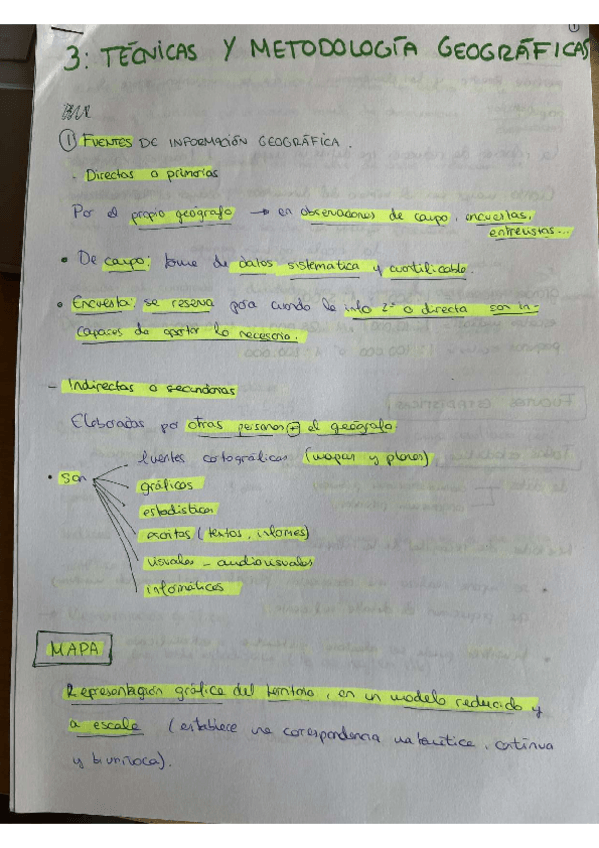 1
3: TÉCNICAS Y METODOLOGÍA GEOGRÁFICAS
① FUENTES DE INFORMACIÓN GEOGRÁFICA.
- Directas o primarias
Por el propio geógrafo → en observaciones de campo, encuestas,
entrevistas...
• De campo: toma de datos sistemática y cuantificable.
• Encuesta: se reserva para cuando la info 2ª o directa son in-
capaces de aportar lo necesario.
- Indirectas o secundarias
Elaboradas por otras personas el geógrafo.
• Son
fuentes cartográficas (mapas y planos)
gráficos
estadísticas
escritas (textos, informes)
visuales - audiovisuales
informáticos
MAPA
Representación gráfica del territorio, en un modelo reducido y
a escala (establece una correspondencia matemática, continua
y biunívoca).